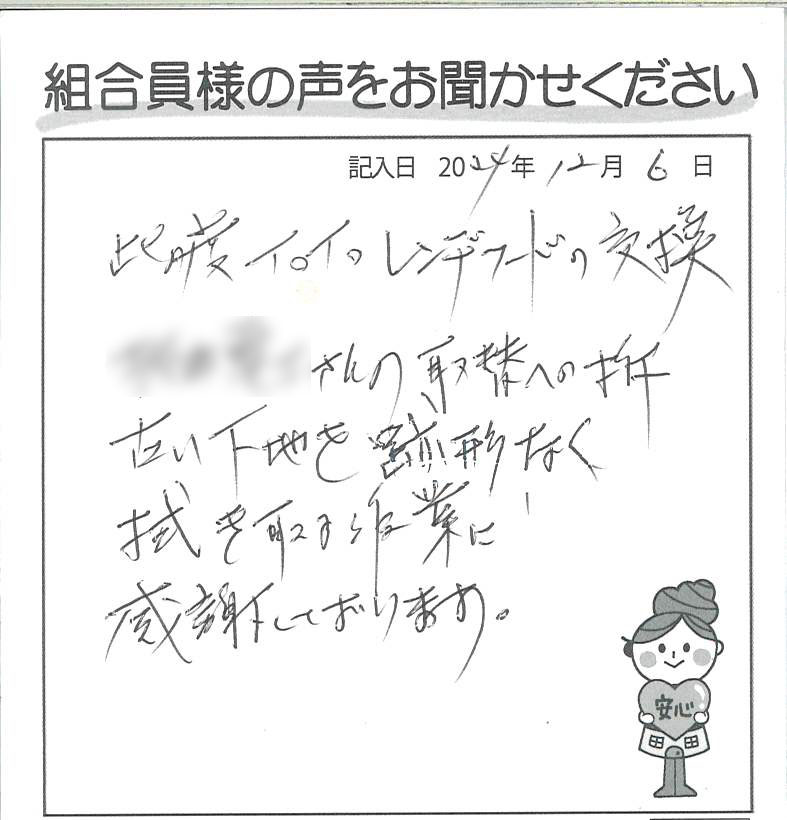 組合員様の声をお聞かせください
記入日 2024年 12月 6日
此度 イロイロ レンヂフードの交換
さんの取替への折
古い下地を 跡形なく
拭き取る作業に
感謝しております。
安心